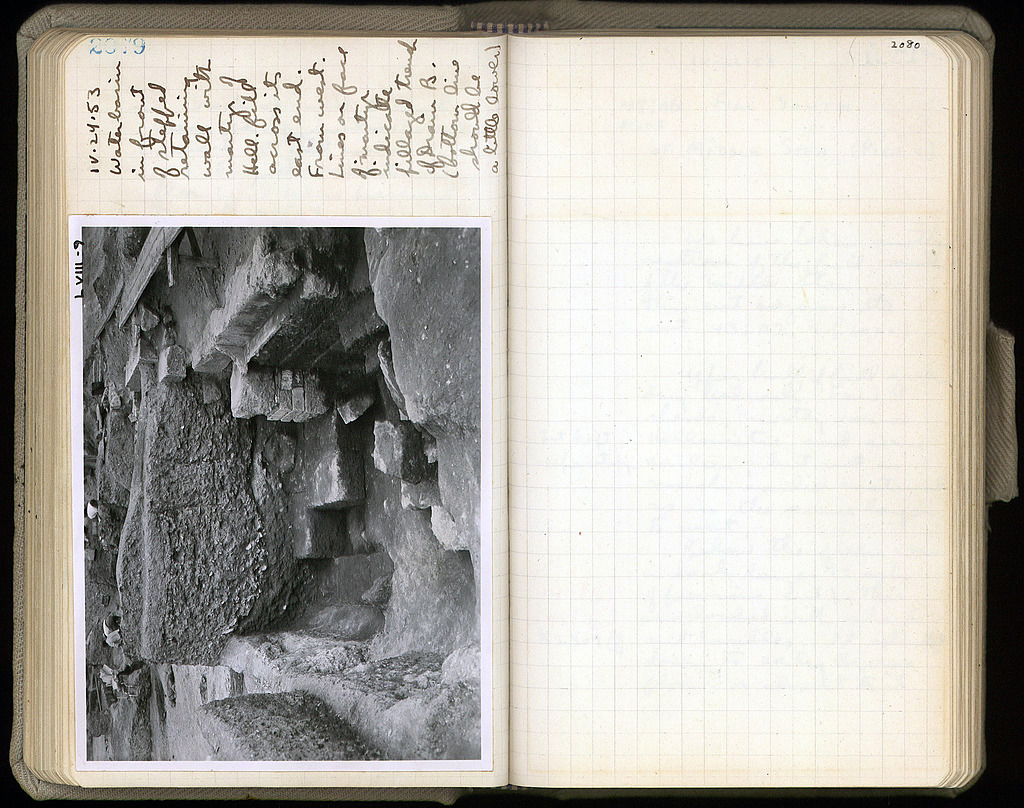 2079
IV.24.53
Waterbasin
in front
of stepped
retaining
wall with
mass of
Hell. fill
across its
east end.
From west.
Lines on face
indicate
pillaged trench
of Drain B.
(bottom line
should be
a little lower)
LVIII-9
2080